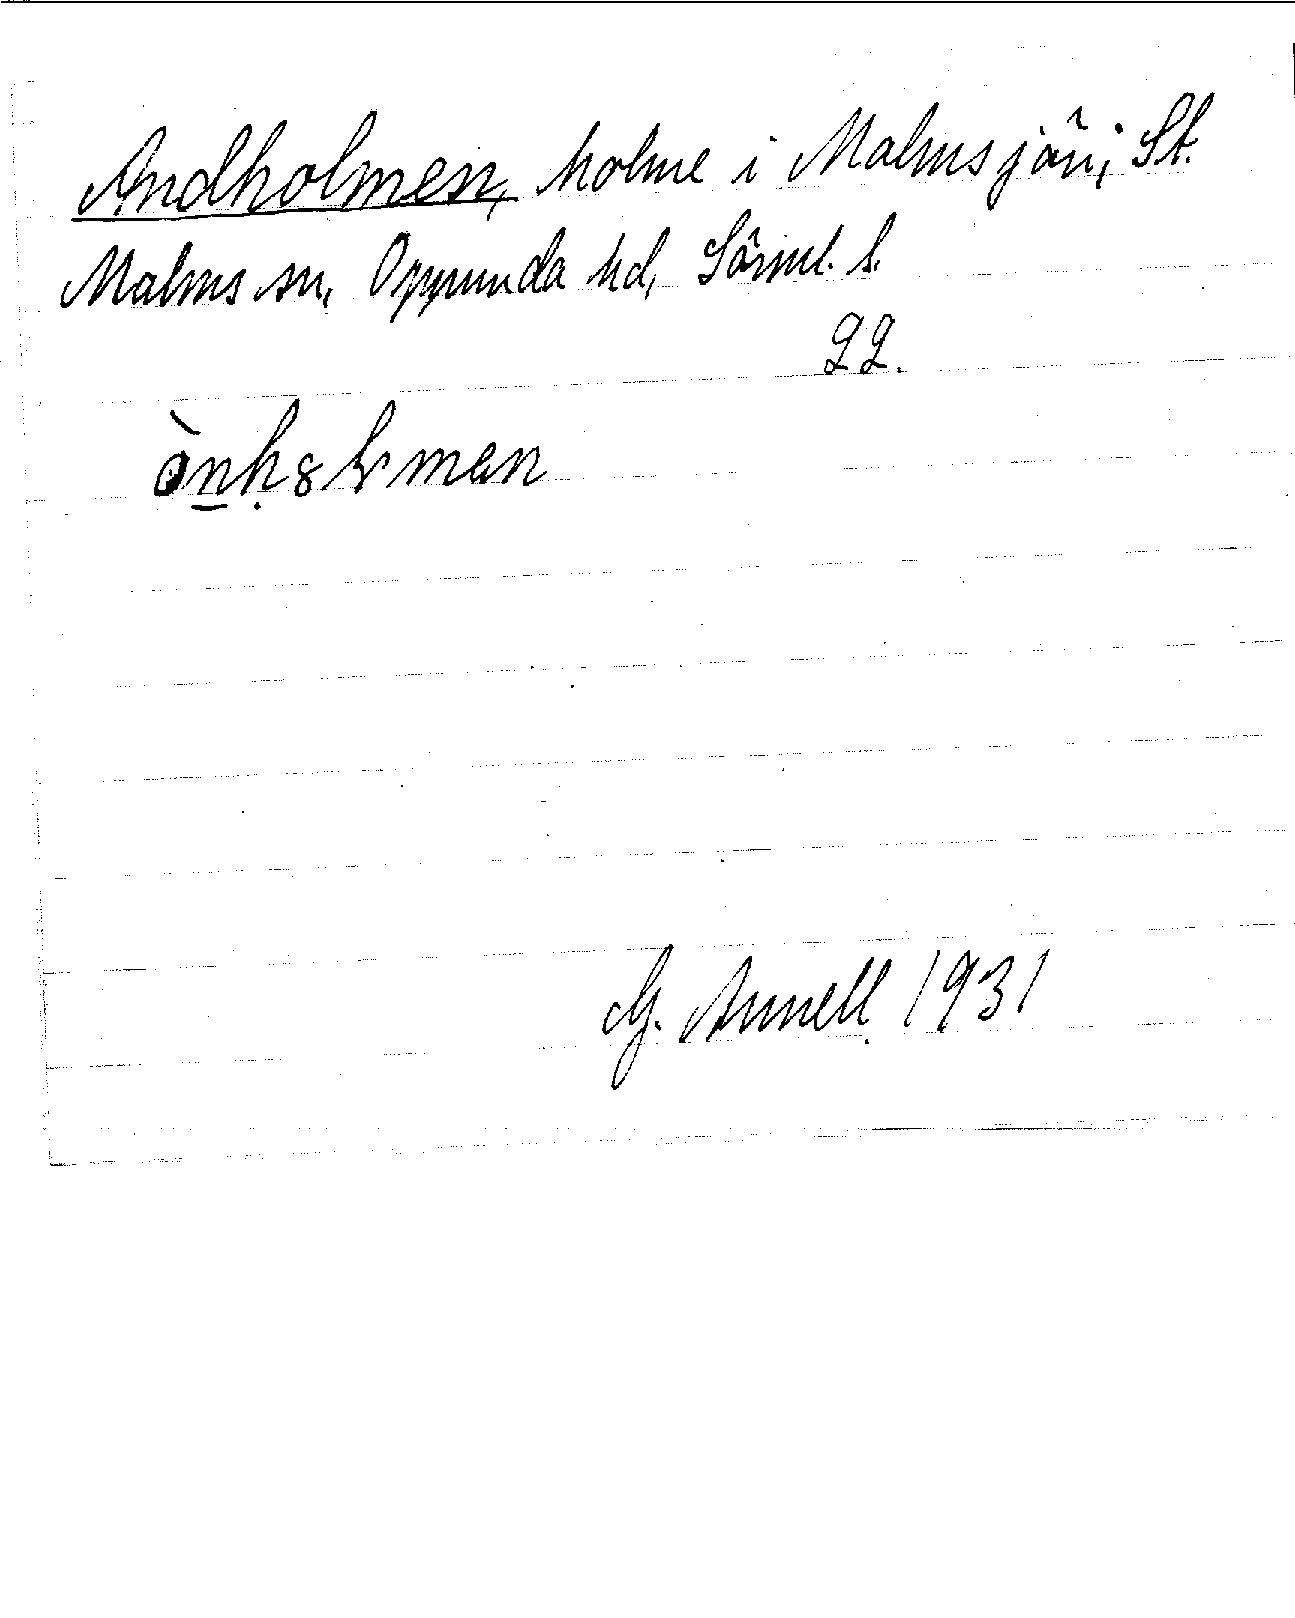 Andholmen, holme i Malmsjön, St.
Malms sn, Oppunda hd, Sörml. l.
22.
G. Annell 1931